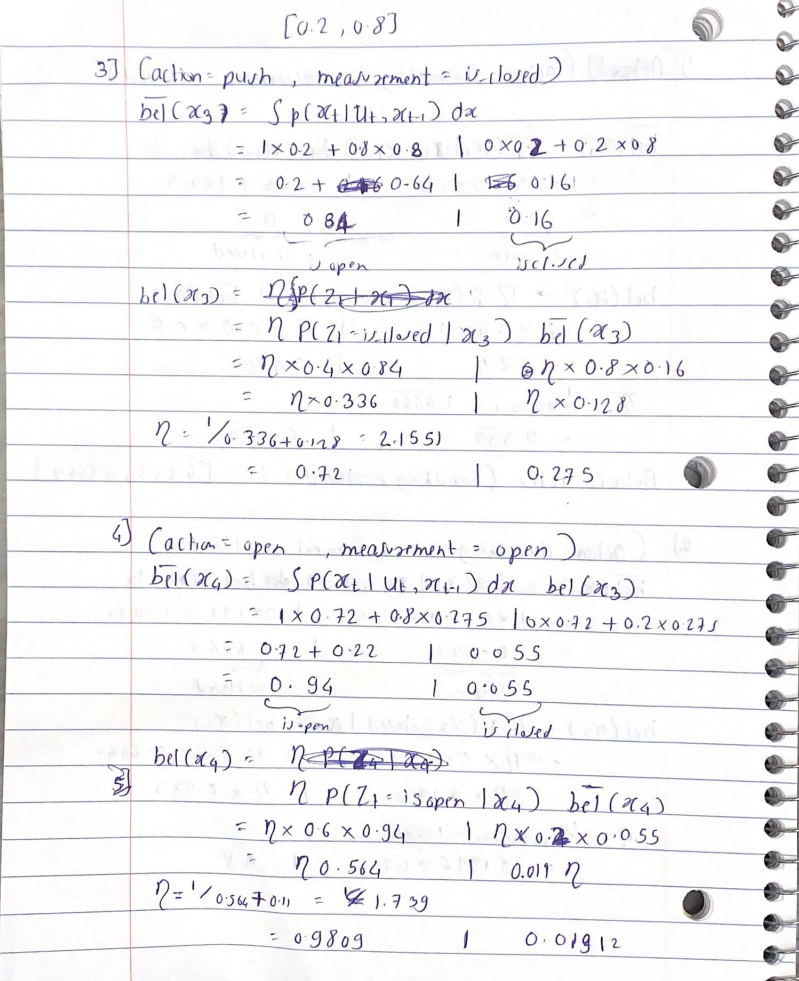 [0.2, 0.8]
3] (action = push, measurement = is-closed)
bel̄(x₃) = ∫ p(xₜ | Uₜ, xₜ₋₁) dx
= 1×0.2 + 0.8×0.8 | 0×0.2 + 0.2×0.8
= 0.2 + 0.64 | 0.16
= 0.84 | 0.16
is open is closed
bel(x₃) =
= η P(Z₁ = is-closed | x₃) bel̄(x₃)
= η×0.4×0.84 | η×0.8×0.16
= η×0.336 | η×0.128
η = 1/0.336+0.128 = 2.1551
= 0.72 | 0.275
4] (action = open, measurement = open)
bel̄(x₄) = ∫ P(xₜ | Uₜ, xₜ₋₁) dx bel(x₃)
= 1×0.72 + 0.8×0.275 | 0×0.72 + 0.2×0.275
= 0.72 + 0.22 | 0.055
= 0.94 | 0.055
is open is closed
bel(x₄) =
η P(Z₁ = is open | x₄) bel̄(x₄)
= η×0.6×0.94 | η×0.2×0.055
= η 0.564 | 0.011 η
η = 1/0.564+0.11 = 1.739
= 0.9809 | 0.01912